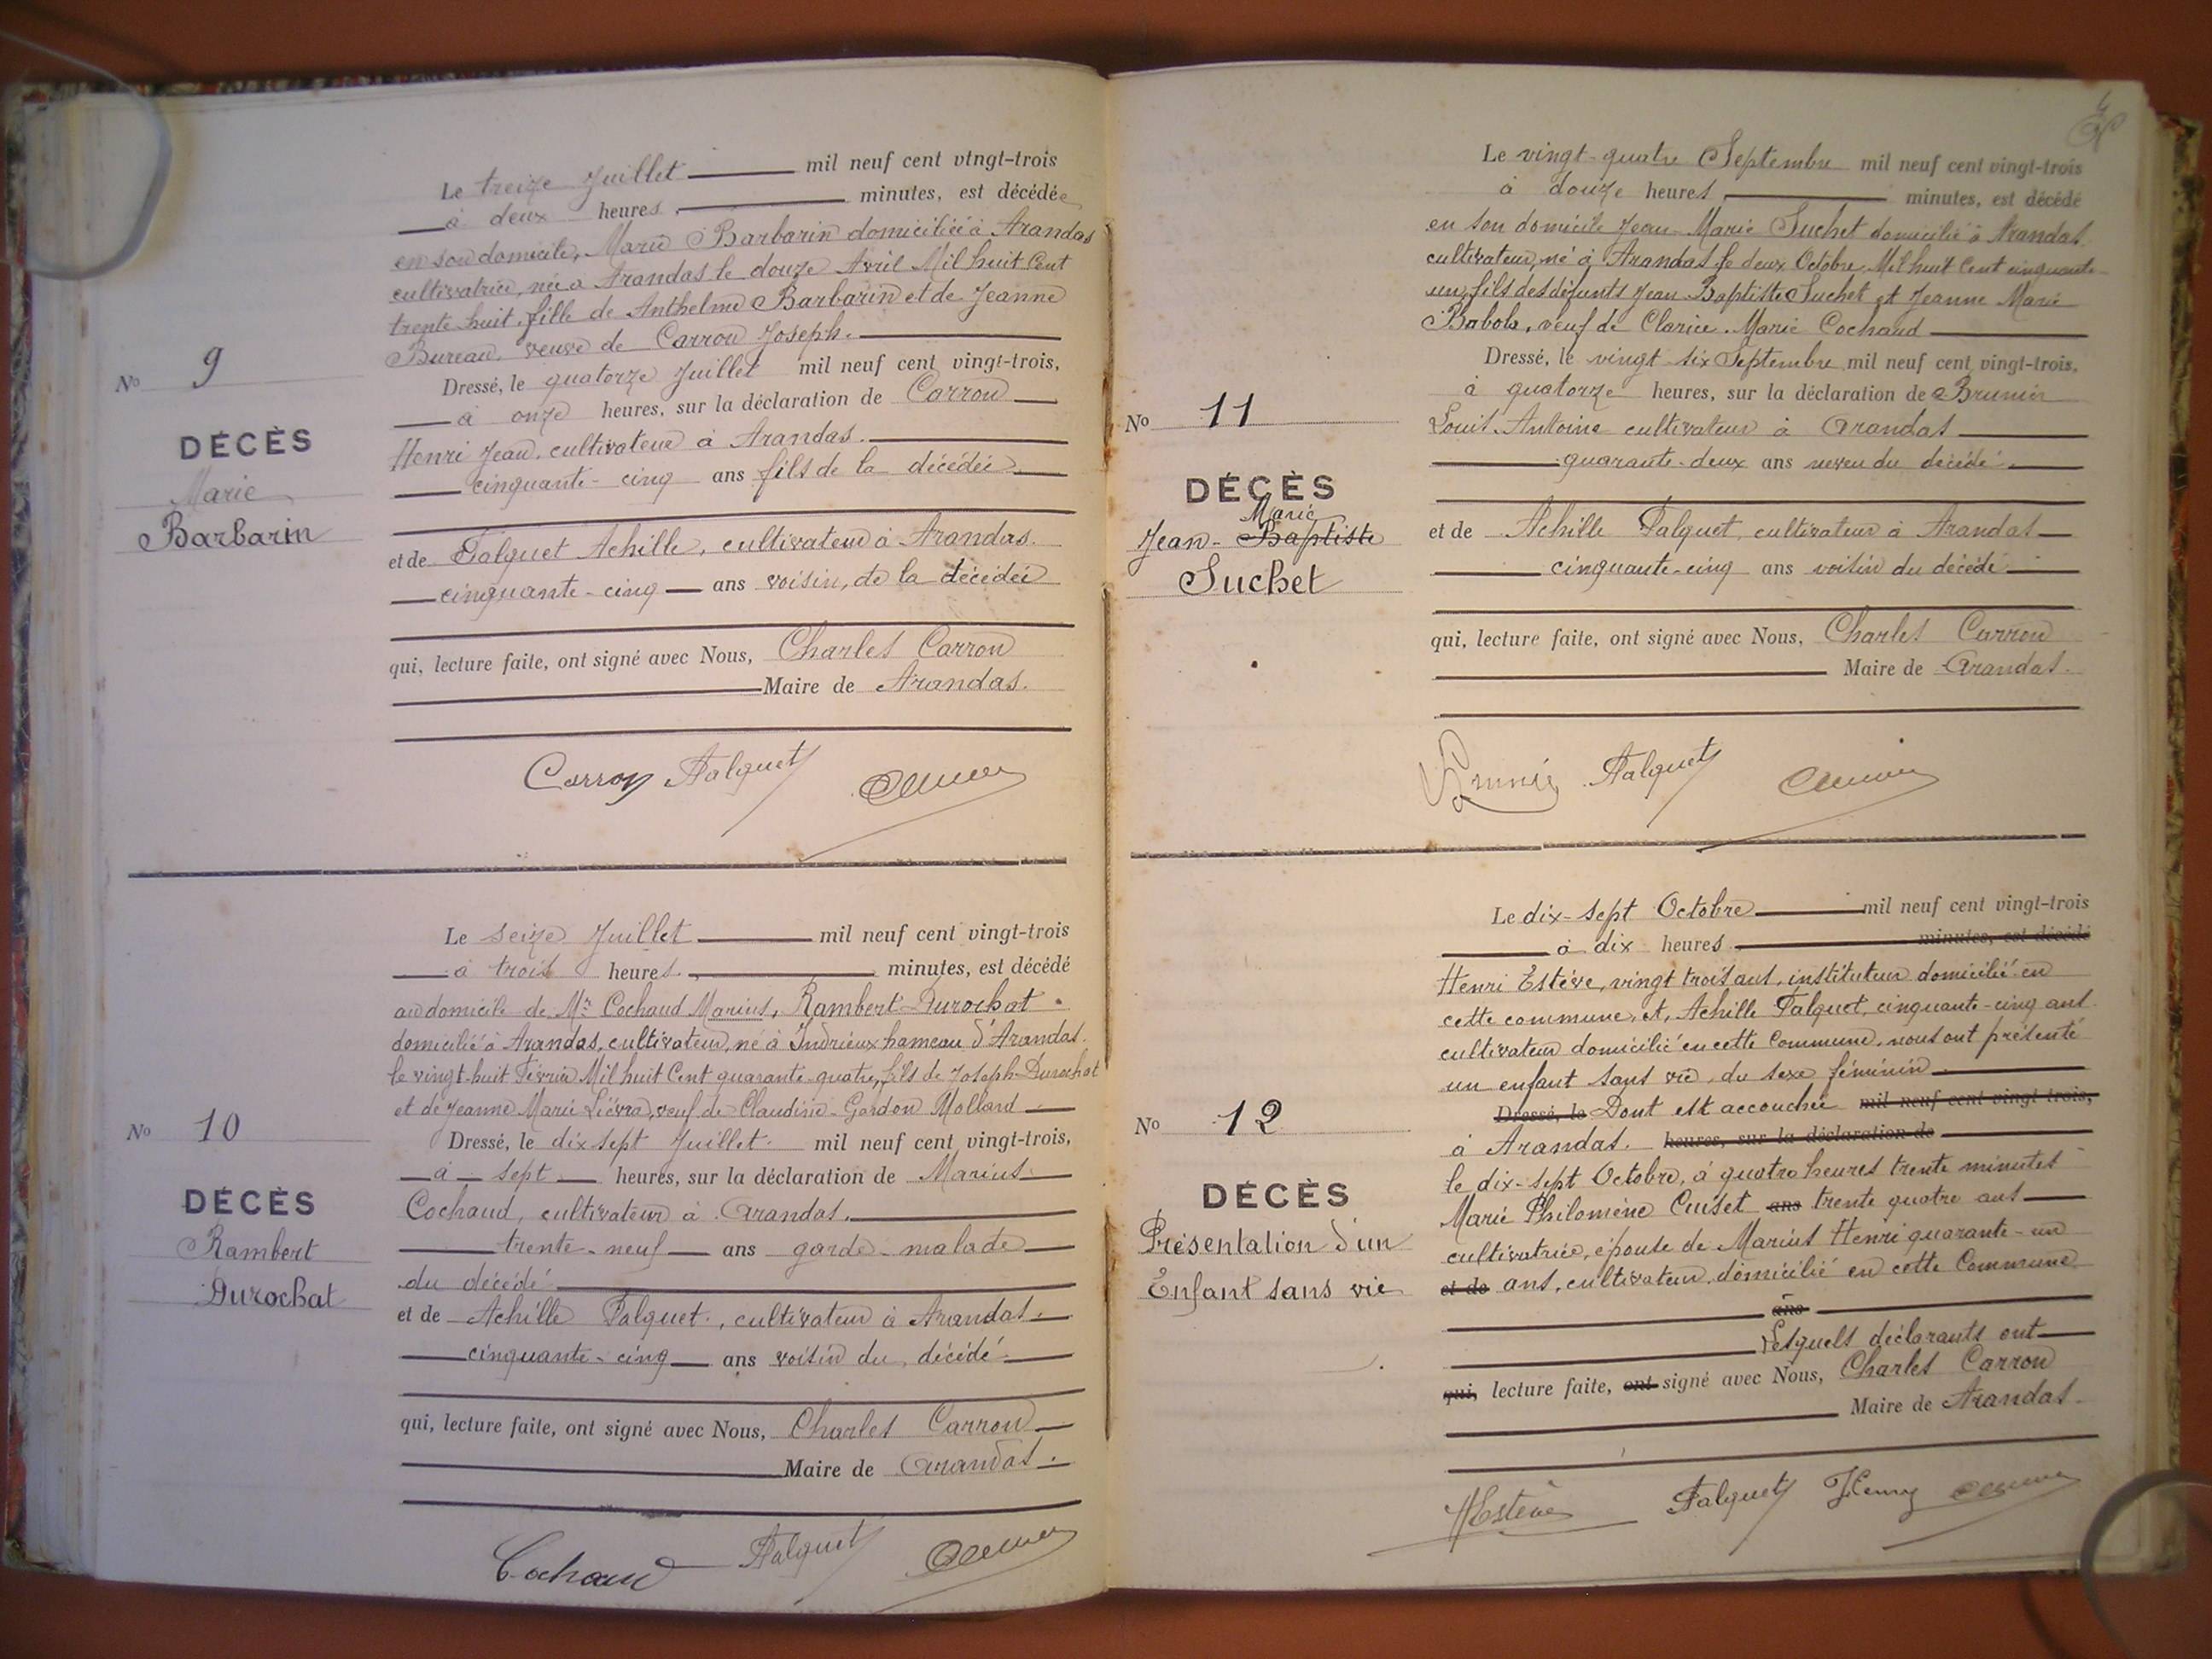 Le treize Juillet mil neuf cent vingt-trois
à deux heures, minutes, est décédée
en son domicile, Marie Barbarin domiciliée à Arandas
cultivatrice, née à Arandas le douze Avril Mil huit Cent
trente huit, fille de Anthelme Barbarin et de Jeanne
Bureau, veuve de Carron Joseph.
No 9
Dressé, le quatorze Juillet mil neuf cent vingt-trois,
à onze heures, sur la déclaration de Carron
DÉCÈS
Henri Jean, cultivateur à Arandas.
Marie
cinquante-cinq ans fils de la décédée
Barbarin
et de Falquet Achille, cultivateur à Arandas.
cinquante-cinq ans voisin, de la décédée
qui, lecture faite, ont signé avec Nous, Charles Carron
Maire de Arandas.
Carron Falquet
Le seize Juillet mil neuf cent vingt-trois
à trois heures, minutes, est décédé
au domicile de Mr Cochaud Marius, Rambert Durochat
domicilié à Arandas, cultivateur, né à Indrieux hameau d'Arandas.
le vingt-huit Février Mil huit Cent quarante-quatre, fils de Joseph Durochat
et de Jeanne Marie Lièvra, veuf de Claudine Gordon Mollard
No 10
Dressé, le dix sept Juillet mil neuf cent vingt-trois,
à sept heures, sur la déclaration de Marius
DÉCÈS
Cochaud, cultivateur à Arandas.
Rambert
trente-neuf ans garde-malade
Durochat
du décédé
et de Achille Falquet, cultivateur à Arandas.
cinquante-cinq ans voisin du décédé
qui, lecture faite, ont signé avec Nous, Charles Carron
Maire de Arandas.
Cochaud Falquet
Le vingt-quatre Septembre mil neuf cent vingt-trois
à douze heures, minutes, est décédé
en son domicile Jean-Marie Suchet domicilié à Arandas.
cultivateur, né à Arandas le deux Octobre, Mil huit Cent cinquante-
un, fils des défunts Jean-Baptiste Suchet et Jeanne Marie
Babola, veuf de Clarice Marie Cochaud
Dressé, le vingt-six Septembre mil neuf cent vingt-trois,
à quatorze heures, sur la déclaration de Brunier
No 11
Louis-Antoine cultivateur à Arandas
quarante-deux ans neveu du décédé.
DÉCÈS
Marie
Jean-Baptiste
Suchet
et de Achille Falquet, cultivateur à Arandas
cinquante-cinq ans voisin du décédé
qui, lecture faite, ont signé avec Nous, Charles Carron
Maire de Arandas.
Falquet
Le dix-sept Octobre mil neuf cent vingt-trois
à dix heures minutes, est décédé
Henri Estève, vingt trois ans, instituteur domicilié en
cette commune, et, Achille Falquet, cinquante-cinq ans
cultivateur domicilié en cette Commune, nous ont présenté
un enfant sans vie, du sexe féminin
Dressé, le Dont est accouchée mil neuf cent vingt-trois,
No 12
à Arandas. heures, sur la déclaration de
le dix-sept Octobre, à quatre heures trente minutes
DÉCÈS
Marie Philomène Cuiset ans trente quatre ans
Présentation d'un
cultivatrice, épouse de Marius Henri quarante-un
Enfant sans vie
et de ans, cultivateur, domicilié en cette Commune
ans
Lesquels déclarants ont
qui, lecture faite, ont signé avec Nous, Charles Carron
Maire de Arandas.
HEstève Falquet Henry